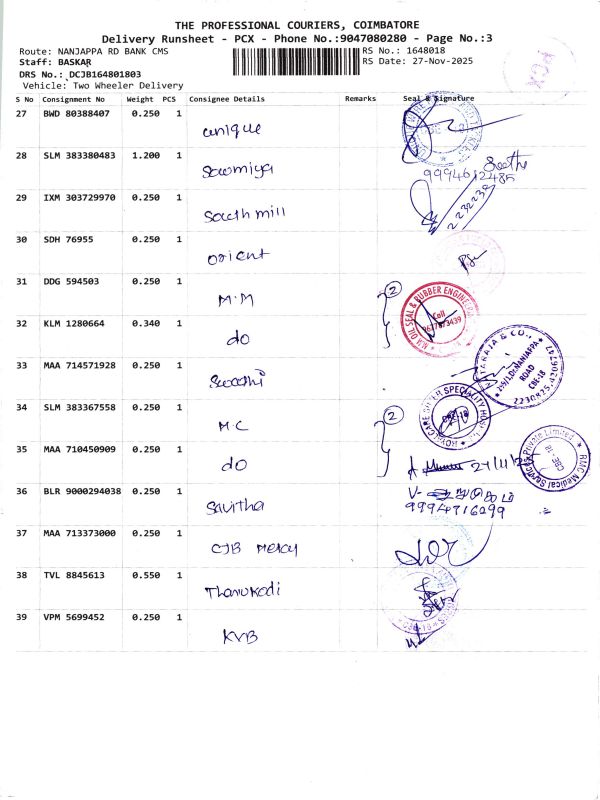 THE PROFESSIONAL COURIERS, COIMBATORE
Delivery Runsheet - PCX - Phone No.:9047080280 - Page No.:3
Route: NANJAPPA RD BANK CMS
RS No.: 1648018
Staff: BASKAR
RS Date: 27-Nov-2025
DRS No.: DCJB164801803
Vehicle: Two Wheeler Delivery
PCX
S No Consignment No Weight PCS Consignee Details Remarks Seal & Signature
27 BWD 80388407 0.250 1 unique
28 SLM 383380483 1.200 1 Sowmiya
9994612485
29 IXM 303729970 0.250 1 South mill
2232238
30 SDH 76955 0.250 1 orient
31 DDG 594503 0.250 1 M.M
2
OIL SEAL & RUBBER ENGINEERING
Call
9677873439
32 KLM 1280664 0.340 1 do
33 MAA 714571928 0.250 1 Swathi
NANJAPPA
ROAD
CBE-18
34 SLM 383367558 0.250 1 M.C
2
SUPER SPECIALITY
CBE-18
35 MAA 710450909 0.250 1 do
RMC Medical Services Private Limited
CBE-18
36 BLR 9000294038 0.250 1 Savitha
9994716099
37 MAA 713373000 0.250 1 CJB Mercy
38 TVL 8845613 0.550 1 Thanukodi
39 VPM 5699452 0.250 1 KVB